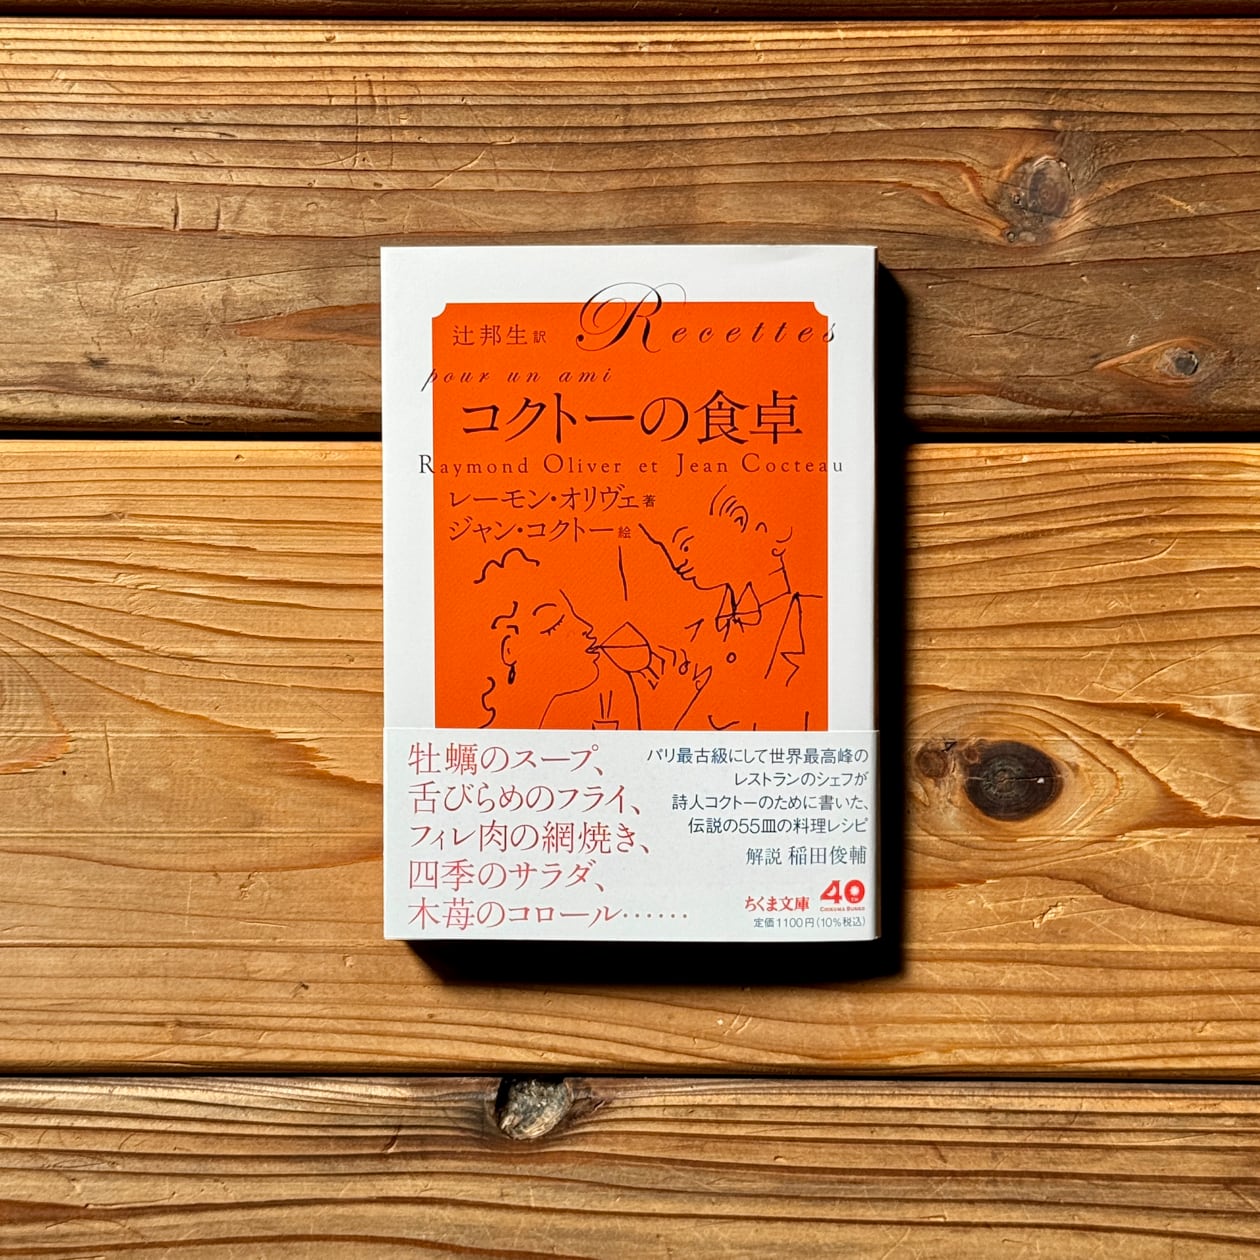 辻邦生 訳
Recettes
pour un ami
コクトーの食卓
Raymond Oliver et Jean Cocteau
レーモン・オリヴェ 著
ジャン・コクトー 絵
牡蠣のスープ、
舌びらめのフライ、
フィレ肉の網焼き、
四季のサラダ、
木苺のコロール……
パリ最古級にして世界最高峰の
レストランのシェフが
詩人コクトーのために書いた、
伝説の55皿の料理レシピ
解説 稲田俊輔
ちくま文庫
40TH
CHIKUMA BUNKO
定価1100円(10%税込)